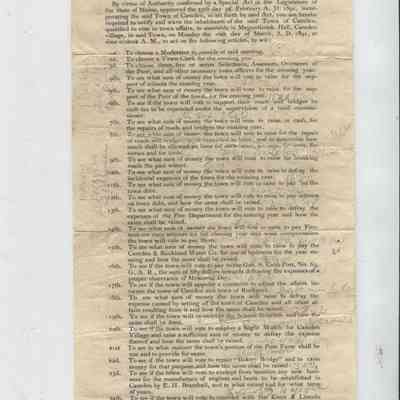 By virtue of Authority conferred by a Special Act of the Legislature of
the State of Maine, approved the day of February A. D. 1891, incor-
porating the said Town of Camden, to set forth by said Act, you are hereby
required to notify and warn the inhabitants of the said Town of Camden,
qualified to vote in town affairs, to assemble in Megunticook Hall, Camden
village, in said Town, on Monday the day of March, A. D. 1891, at
o'clock A. M., to act on the following articles, to wit:
1. To choose a Moderator to preside at said meeting.
2d. To choose a Town Clerk for the ensuing year.
3d. To choose three, five or seven Selectmen, Assessors, Overseers of
the Poor, and all other necessary town officers for the ensuing year.
4th. To see what sum of money the town will vote to raise for the sup-
port of schools the ensuing year.
5th. To see what sum of money the town will vote to raise for the sup-
port of the Poor of the town, for the ensuing year.
6th. To see if the town will vote to support their roads and bridges by
cash tax to be expended under the supervision of a road commis-
sioner.
7th. To see what sum of money the town will vote to raise, in cash, for
the repairs of roads and bridges the ensuing year.
8th. To see what sum of money the town will vote to raise for the repairs
of roads
much shall be allowed an hour for
9th. To see what sum of money the town will vote to raise for breaking
roads the past winter.
10th. To see what sum of money the town will vote to raise to defray the
incidental expenses of the town for the ensuing year.
11th. To see what sum of money the town will vote to raise to pay the
town debt.
12th. To see what sum of money the town will vote to raise to pay interest
on town debt, and how the same shall be raised.
13th. To see what sum of money the town will vote to raise to defray the
expenses of the Fire Department for the ensuing year and how the
same shall be raised.
14th. To see what sum of money the town will vote to raise to pay
the ensuing year and what compensation
the town will vote to pay them.
15th. To see what sum of money the town will vote to raise to pay the
Camden & Rockland Water Co. for use of hydrants for the year en-
suing and how the same shall be raised.
16th. To see if the town will vote to pay to the Geo. S. Cobb Post, No. 63,
G. A. R., the sum of fifty dollars towards defraying the expenses of a
proper observance of Memorial Day.
17th. To see if the town will appoint a committee to adjust the affairs be-
tween the town of Camden and town of Rockport.
18th. To see what sum of money the town will vote to raise to defray the
expense caused by setting off the town of Camden and all other af-
fairs resulting from it and how the same shall be raised.
19th. To see if the town will and how the
same shall be done.
20th. To see if the town will vote to employ a Night Watch for Camden
Village and raise a sufficient sum of money to defray the expense
thereof and how the same shall be raised.
21st. To see in what manner the town's portion of the Poor Farm shall be
run and to provide for same.
22d. To see if the town will vote to repair "Bakery Bridge" and to raise
money for that purpose and how the same shall be raised.
23d. To see if the town will vote to exempt from taxation any new busi-
ness for the manufacture of engines and boats to be established in
Camden by E. H. Bramhall, and to what extent and for what term
of years.
24th. To see if the town will vote to contract with the Knox & Lincoln